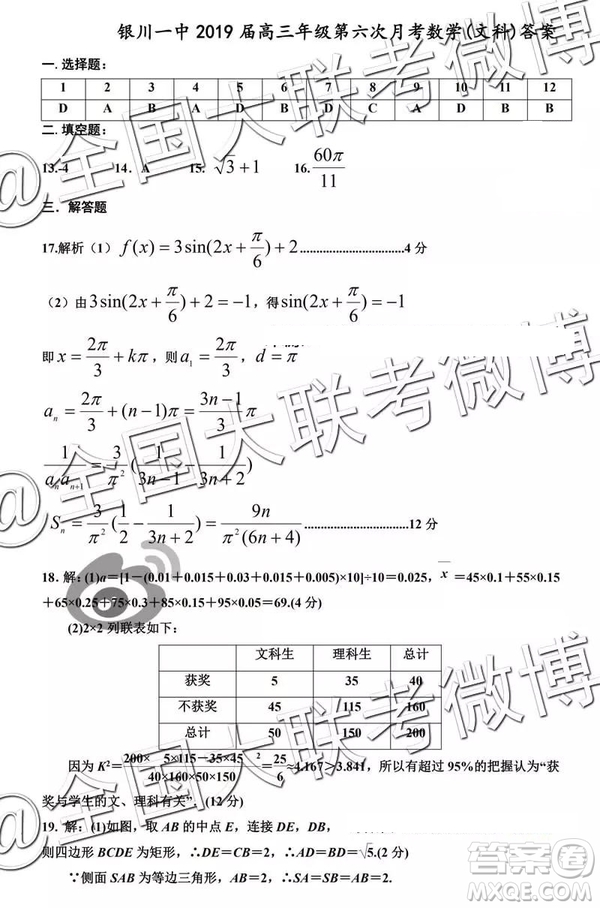 银川一中2019届高三年级第六次月考数学(文科)答案
一.选择题:
1 2 3 4 5 6 7 8 9 10 11 12
D A B A D B C A B
二.填空题:
13.-4 14. A 15. √3+1 16. 60π/11
三.解答题
17.解析(1) f(x)=3sin(2x+π/6)+2......................4分
(2)由3sin(2x+π/6)+2=-1,得sin(2x+π/6)=-1
即x=2π/3+kπ,则a₁=2π/3,d=π
aₙ=2π/3+(n-1)π=3n-1/3 π
1/aₙaₙ₊₁=3/π²(1/3n-1-1/3n+2)
Sₙ=3/π²(1/2-1/3n+2)=9n/π²(6n+4)......................12分
18.解:(1)a=[1-(0.01+0.015+0.03+0.015+0.005)×10]÷10=0.025,x̄=45×0.1+55×0.15
+65×0.25+75×0.3+85×0.15+95×0.05=69.(4分)
(2)2×2列联表如下:
文科生 理科生 总计
获奖 5 35 40
不获奖 45 115 160
总计 50 150 200
因为K²=200× 5×115-35×45 ²/40×160×50×150=25/6≈4.167>3.841,所以有超过95%的把握认为“获
奖与学生的文、理科有关”.(12分)
19.解:(1)如图,取AB的中点E,连接DE,DB,
则四边形BCDE为矩形,∴DE=CB=2,∴AD=BD=√5.(2分)
∵侧面SAB为等边三角形,AB=2,∴SA=SB=AB=2.
@全国大联考微博
@全国大联考微博
@全国大联考微博
答案圈
MXQE.COM